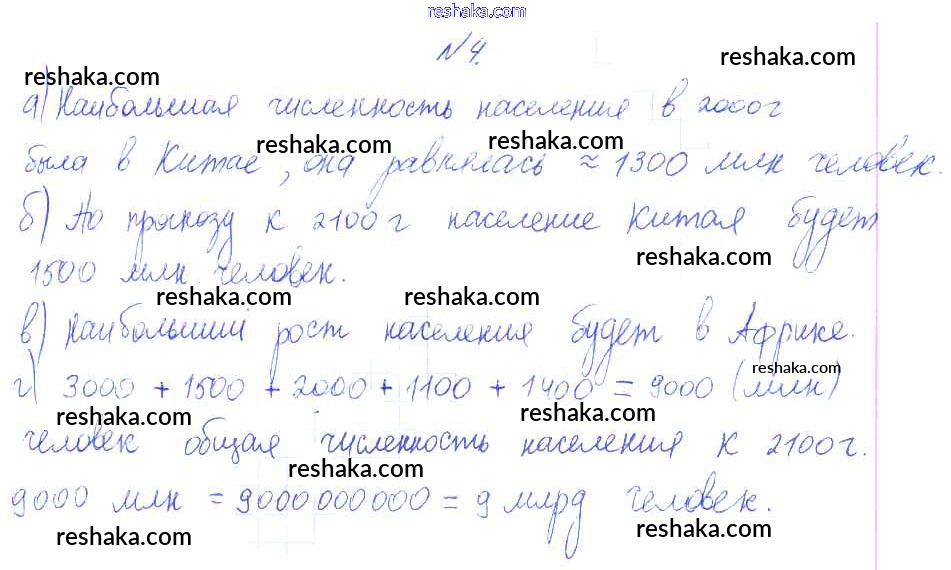 reshaka.com
№4.
reshaka.com
reshaka.com
а) Наибольшая численность населения в 2000г
reshaka.com
reshaka.com
была в Китае, она равнялась ≈ 1300 млн человек.
б) По прогнозу к 2100 г население Китая будет
reshaka.com
1500 млн. человек.
reshaka.com
reshaka.com
в) Наибольший рост населения будет в Африке.
reshaka.com
г) 3000 + 1500 + 2000 + 1100 + 1400 = 9000 (млн)
reshaka.com
reshaka.com
человек общая численность населения к 2100г.
reshaka.com
9000 млн = 9000000000 = 9 млрд человек.
reshaka.com
reshaka.com